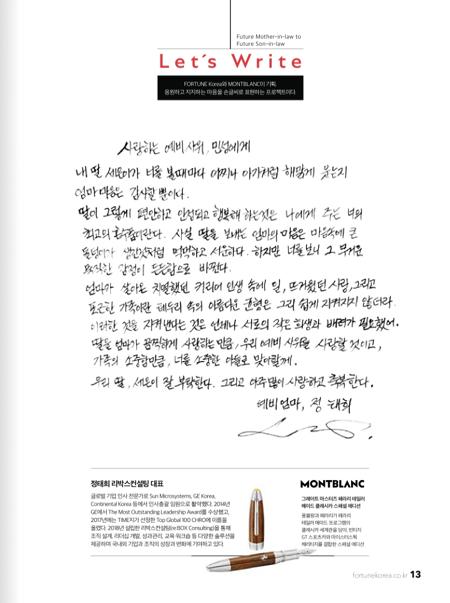 Future Mother-in-law to
Future Son-in-law
Let's Write
FORTUNE Korea와 MONTBLANC이 기획,
응원하고 지지하는 마음을 손글씨로 표현하는 프로젝트이다.
사랑하는 예비 사위, 민섭에게
내 딸 세은이가 너를 볼때마다 아끼나 아가처럼 해맑게 웃는지
엄마 마음은 감사할 뿐이다.
딸이 그렇게 편안하고 안정되고 행복해 하는것은 나에게 주는 너의
최고의 효수품이란다. 사실 딸을 보내는 엄마의 마음은 마음속에 큰
생긴것처럼 먹먹하고 서운하다. 하지만 너를 보니 그 무거운
감정이 든든함으로 바뀐다.
엄마가 살아온 치열했던 커리어 인생 속에 일, 뜨거웠던 사랑, 그리고
포근한 가족이란 테두리 속의 아름다운 균형은 그리 쉽게 지켜지지 않더라.
이러한 것을 지켜낸다는 것은 언제나 서로의 작은 희생과 배려가 필요했어.
딸을 엄마가 끔찍하게 사랑하는 만큼, 우리 예비 사위를 사랑할 것이고,
가족의 소중함만큼, 너를 소중한 아들로 맞이할께.
우리 딸, 세은이 잘 부탁한다. 그리고 아주 많이 사랑하고 축복한다.
예비엄마, 정 태희
정태희 리박스컨설팅 대표
글로벌 기업 인사 전문가로 Sun Microsystems, GE Korea,
Continental Korea 등에서 인사총괄 임원으로 활약했다. 2014년
GE에서 The Most Outstanding Leadership Award를 수상했고,
2017년에는 TIME지가 선정한 Top Global 100 CHRO에 이름을
올렸다. 2018년 설립한 리박스컨설팅(reBOX Consulting)을 통해
조직 설계, 리더십 개발, 성과관리, 교육·워크숍 등 다양한 솔루션을
제공하며 국내외 기업과 조직의 성장과 변화에 기여하고 있다.
MONTBLANC
그레이트 마스터즈 페라리 테일러
메이드 클래시카 스페셜 에디션
몽블랑과 페라리가 페라리
테일러 메이드 프로그램의
클래시카 세계관을 담아, 빈티지
GT 스포츠카와 마이스터스튁
헤리티지를 결합한 스페셜 에디션
fortunekorea.co.kr 13